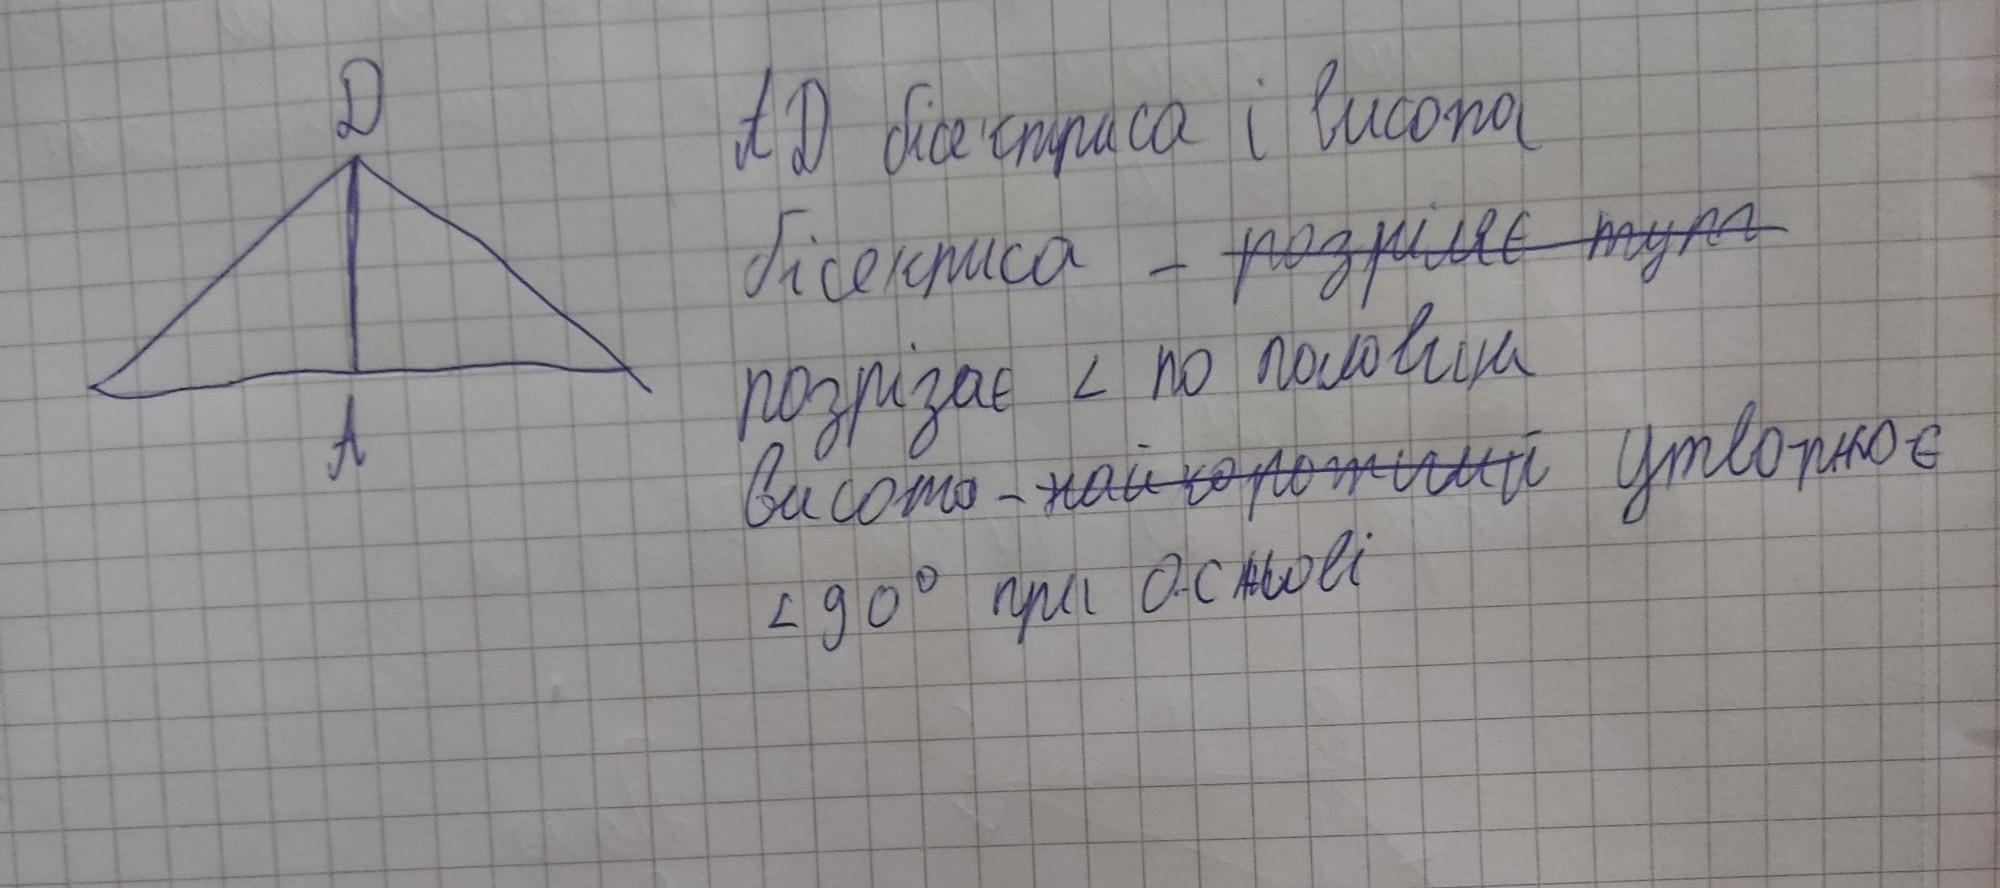 D
A
AD бісектриса і висота
бісекриса - розріляє тупа
розрізає < по половіни
висота - найкоротший утворює
< 90° при основі